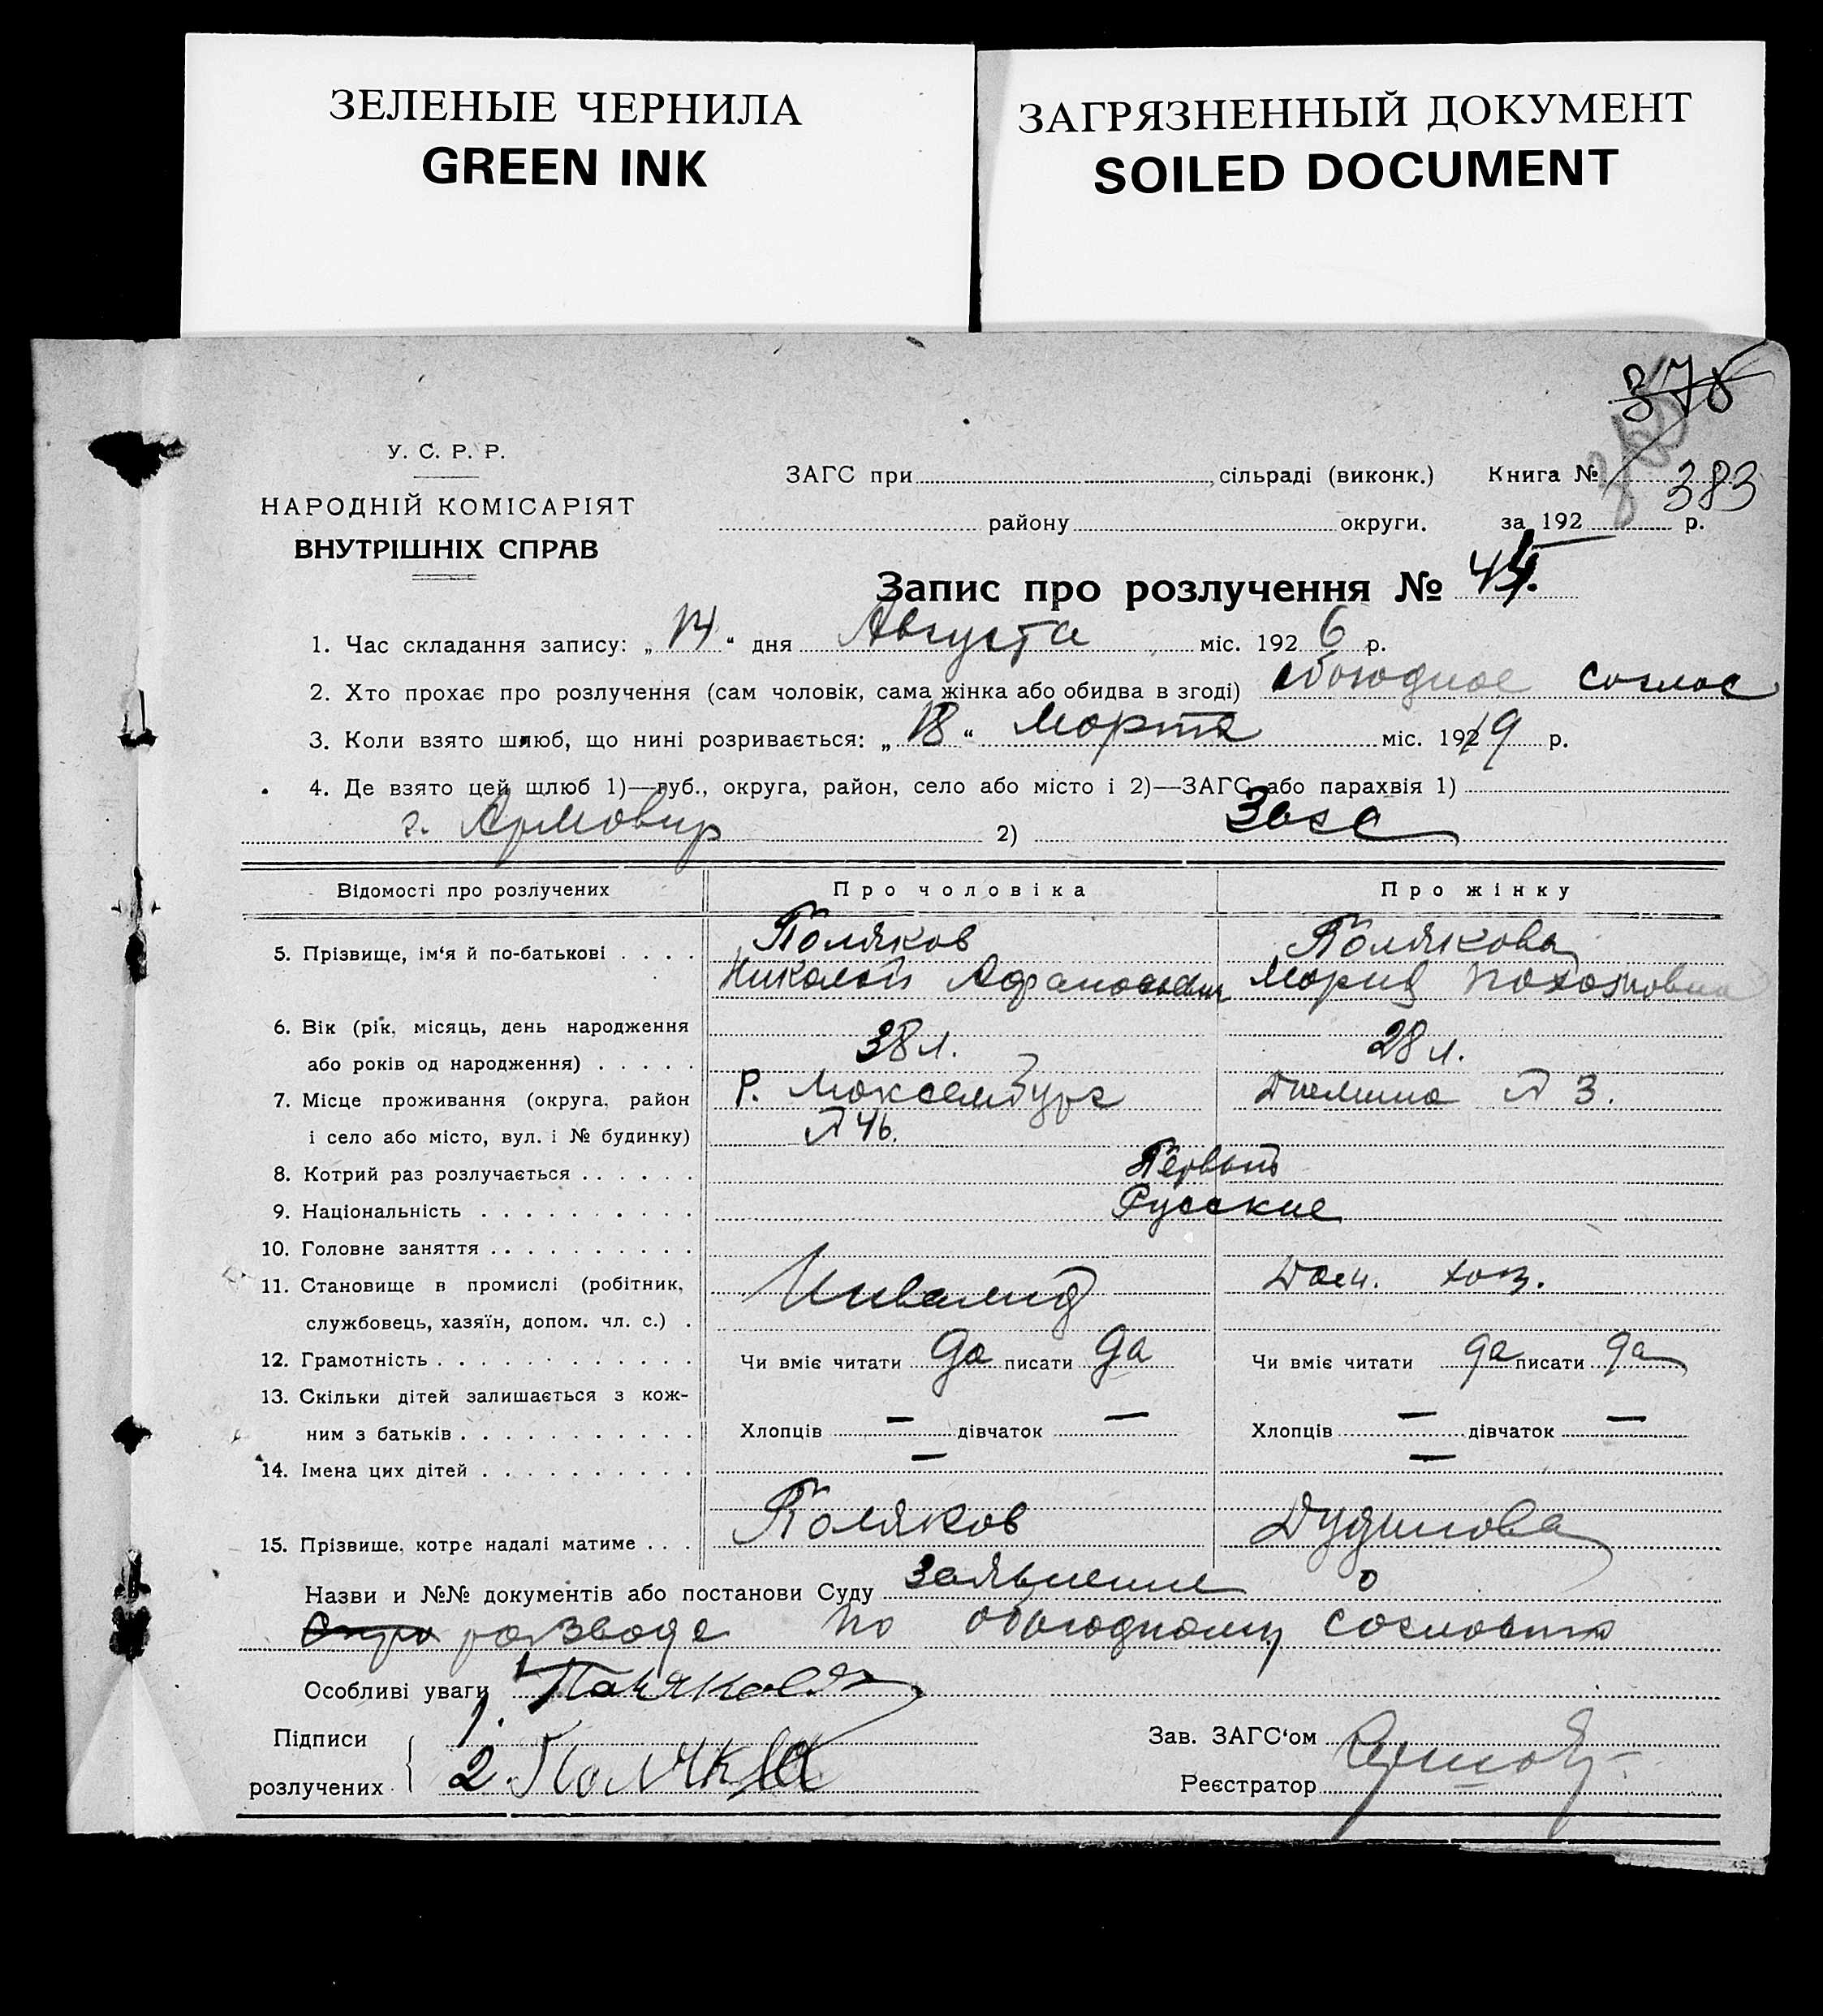 ЗЕЛЕНЫЕ ЧЕРНИЛА
GREEN INK
ЗАГРЯЗНЕННЫЙ ДОКУМЕНТ
SOILED DOCUMENT
383
У. С. Р. Р.
НАРОДНІЙ КОМІСАРІЯТ
ВНУТРІШНІХ СПРАВ
ЗАГС при сільраді (виконк.) Книга №
району округи. за 192 р.
Запис про розлучення № 44.
1. Час складання запису: „14“ дня Августа міс. 1926 р.
2. Хто прохає про розлучення (сам чоловік, сама жінка або обидва в згоді) обоюдное соглас
3. Коли взято шлюб, що нині розривається: „18“ Марта міс. 1919 р.
4. Де взято цей шлюб 1)—губ., округа, район, село або місто і 2)—ЗАГС або парахвія 1)
г. Армовир 2) Загс
Відомості про розлучених Про чоловіка Про жінку
5. Прізвище, ім‘я й по-батькові Поляков Полякова
Николай Афанасьевич Мария
6. Вік (рік, місяць, день народження
або років од народження) 38 л. 28 л.
7. Місце проживання (округа, район Р. Люксембург № 3.
і село або місто, вул. і № будинку) № 46.
8. Котрий раз розлучається Первый
9. Національність Русские
10. Головне заняття
11. Становище в промислі (робітник, Инвалид Дом. хоз.
службовець, хазяїн, допом. чл. с.)
12. Грамотність Чи вміє читати да писати да Чи вміє читати да писати да
13. Скільки дітей залишається з кож-
ним з батьків Хлопців — дівчаток — Хлопців — дівчаток —
14. Імена цих дітей — —
15. Прізвище, котре надалі матиме Поляков Дудинова
Назви и №№ документів або постанови Суду Заявление о
разводе по обоюдному согласию
Особливі уваги
Підписи 1. Поляков
розлучених 2. Полякова
Зав. ЗАГС‘ом
Реєстратор